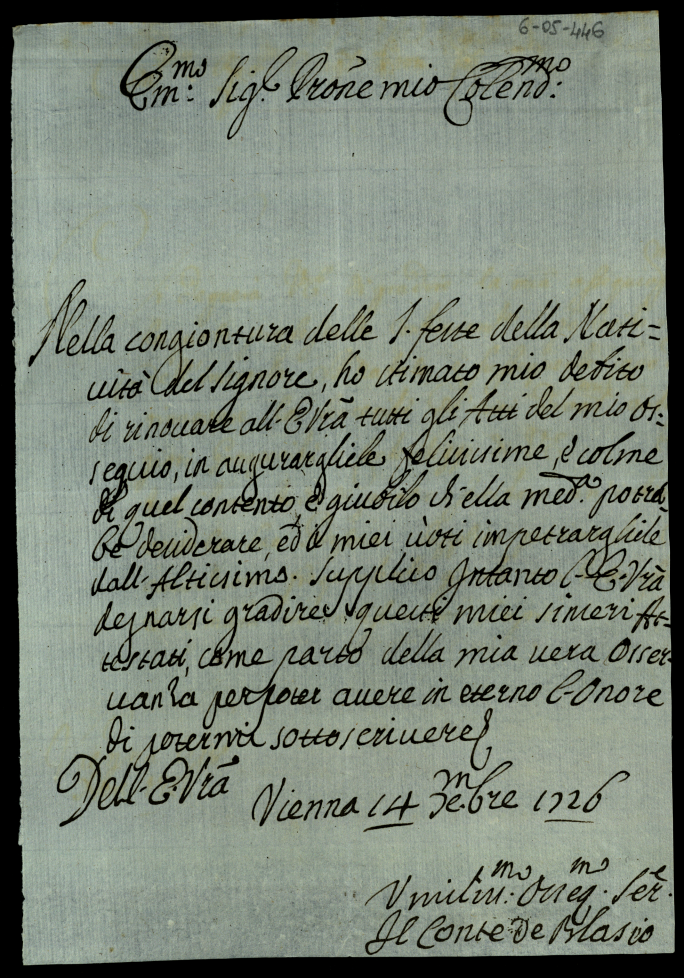 6-05-446
Em:mo Sig.r Prone mio Colend:mo
Nella congiontura delle S. feste della Nati=
uità del Signore, ho stimato mio debito
di rinouare all. E Vrã tutti gli Atti del mio os=
sequio, in augurargliele felicissime, è colme
di quel contento, è giubilo ch'ella med.ma potrà-
be desiderare, ed i miei uoti impetrargliele
dall. Altissimo. Supplico Intanto l. E. Vrã
degnarsi gradire questi miei sinceri At-
testati, come parto della mia uera Osser-
uanza per poter auere in eterno l. Onore
di potermi sottoscriuere
Dell. E. Vrã
Vienna 14 Xe.mbre 1726
Vmiliss:mo Osseq.mo Ser.e
Il Conte De Blasio